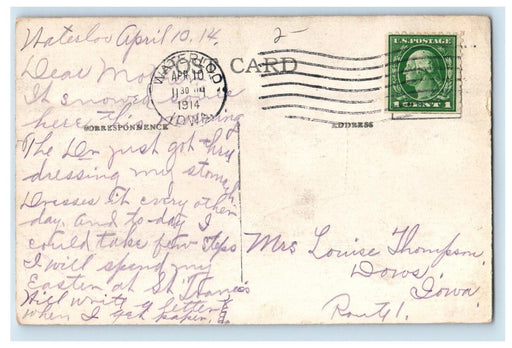 Waterloo April 10, 14.
Dear Mother
It snowed some
here this morning
The Dr. just got thru
dressing my stomach
Dresses it every other
day. and to day I
could take few steps
I will spend my
Easter at St. Francis
Will write a letter
when I get paper.
POST CARD
CORRESPONDENCE
ADDRESS
WATERLOO
APR 10
11 30 M
1914
IOWA
2
U.S. POSTAGE
1 CENT 1
Mrs Louise Thompson.
Dows.
Iowa
Route 1.